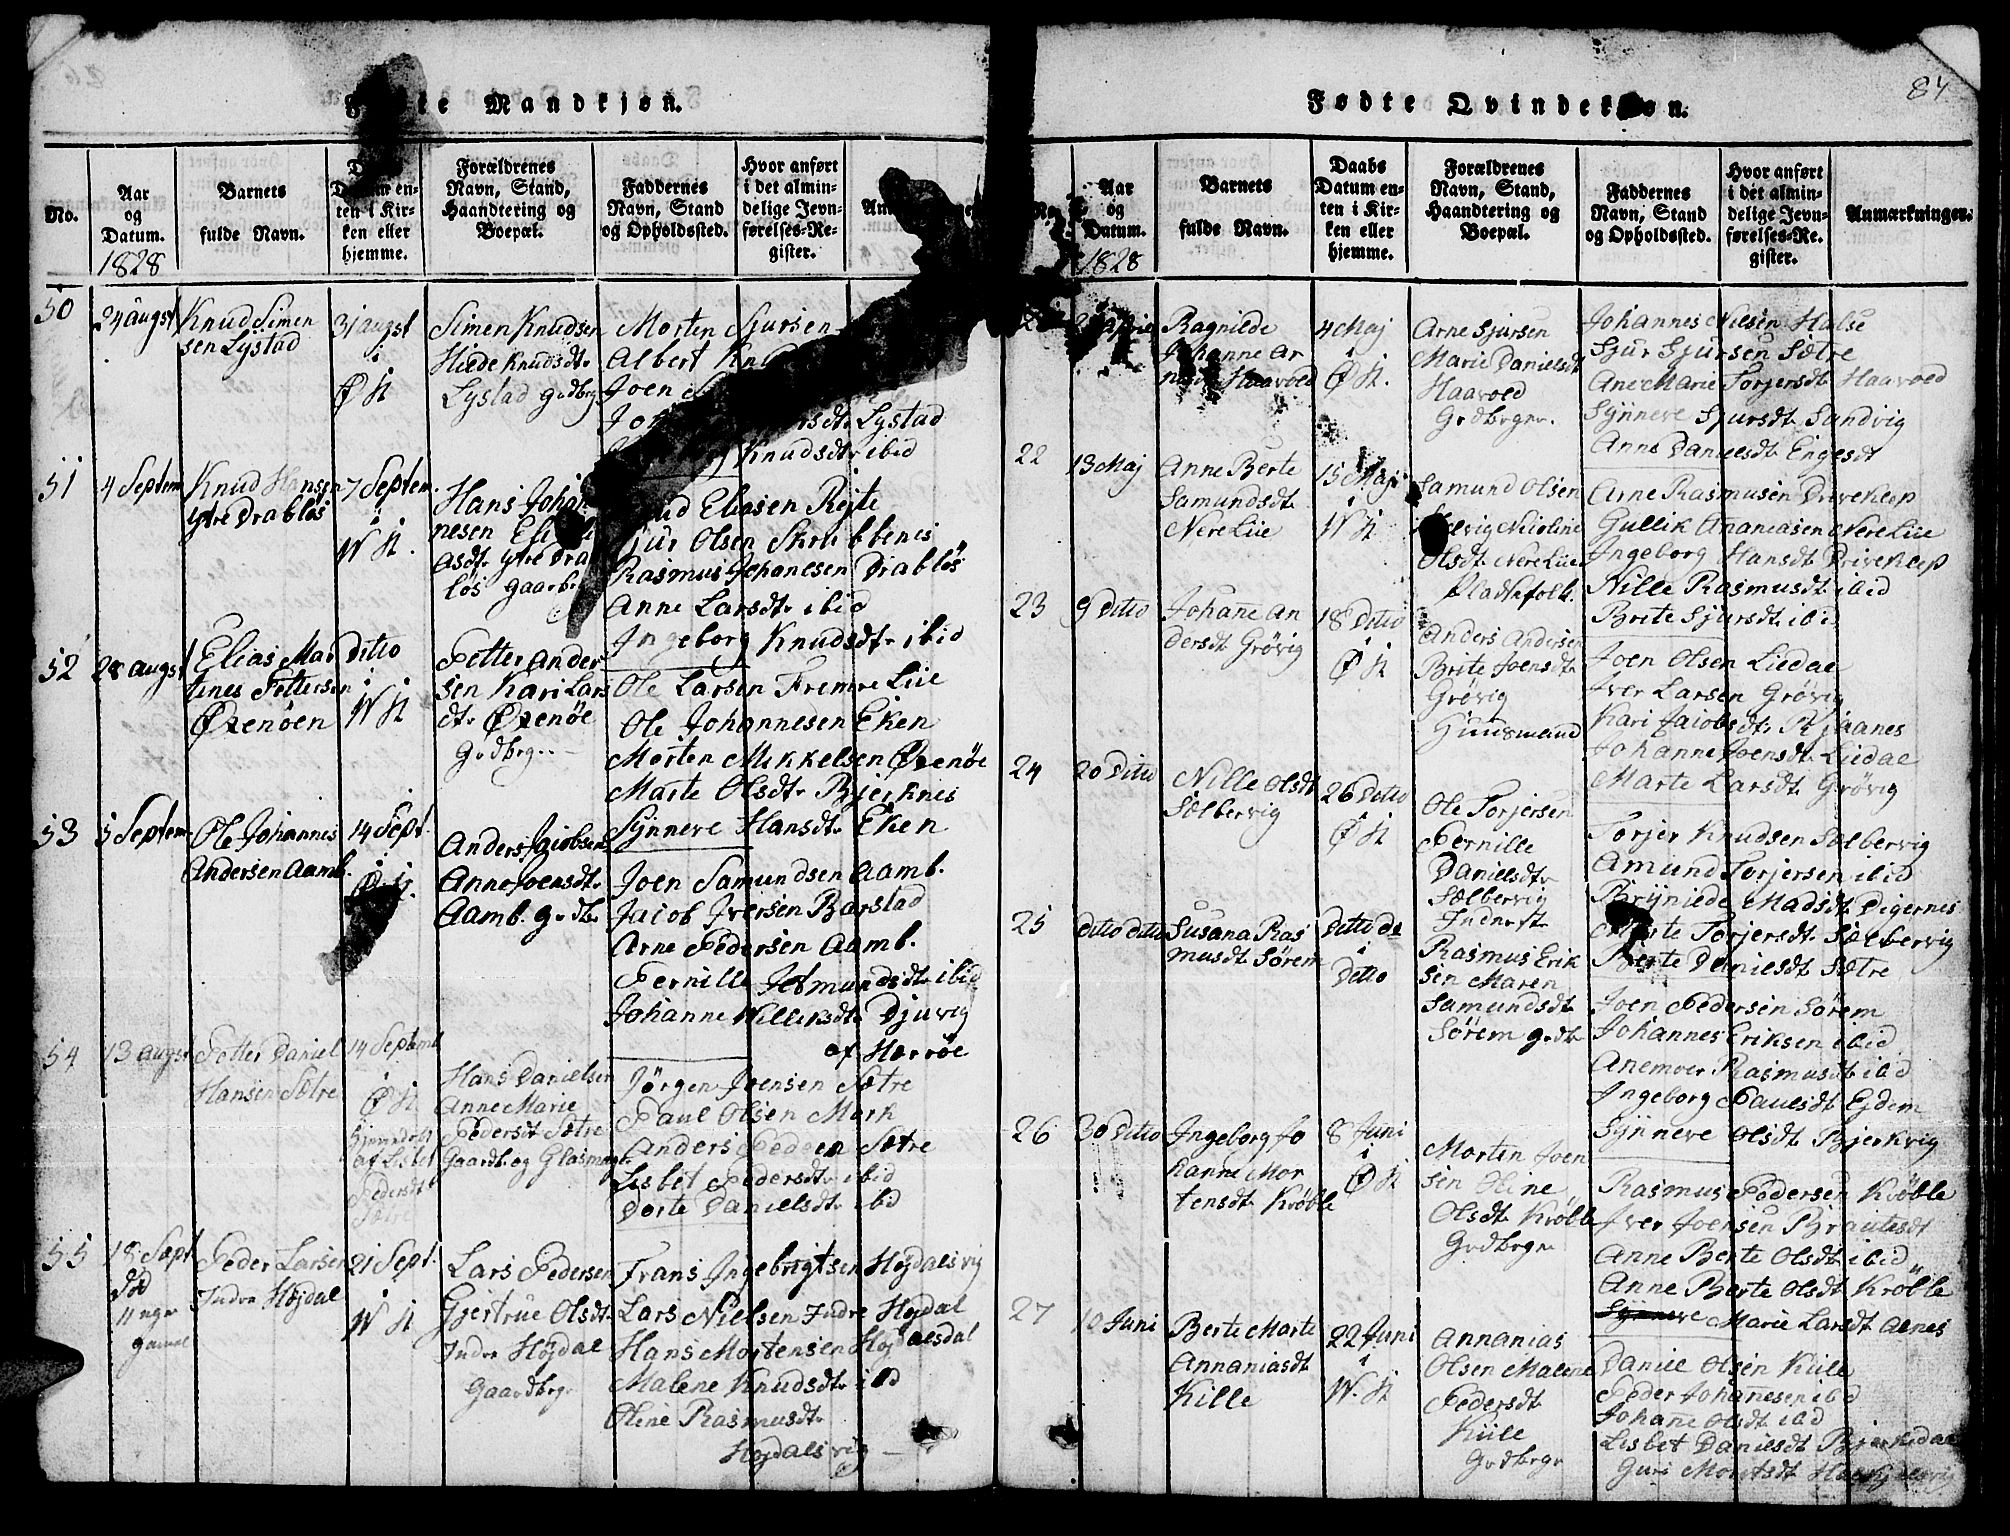 Fødte Mandkjøn.
No.
Aar
og
Datum.
1828
Barnets
fulde Navn.
Datum en-
ten i Kir-
ken eller
hjemme.
Forældrenes
Navn, Stand,
Haandtering og
Boepæl.
Faddernes
Navn, Stand
og Opholdssted.
Hvor anført
i det almin-
delige Jevn-
førelses-Re-
gister.
50
24 augst
Knud Simen
sen Lystad
31 augst
i
Ø K
Simen Knudsen
Hilde Knudsdt.
Lystad grdbrg.
Morten Sjursen
Albert
Joen
Lystad
Knudsdt. ibid
51
4 Septem
Knud Hansen
ytre Drabløs
7 Septem.
i
W K.
Hans Johan
nesen
asdt. ytre Dra
løs gaarbr
Eliasen Rejte
Sjur Olsen Skrubbenes
Rasmus Johanesen Drabløs
Anne Larsdt. ibid
Ingeborg Knudsdt. ibid
52
28 augst
Elias Mar
tines Pettersen
Øxenøen
Ditto
i
W K
Petter Ander
sen Kari Lars
dt. Øxenøe
Grdbrg.
Ole Larsen Fremre Lie
Ole Johannesen Eken
Morten Mikkelsen Øxenøe
Marte Olsdt. Bjerknes
Synneve Hansdt. Eken
53
5 Septem.
Ole Johannes
Andersen Aamb.
14 Sept.
i
Ø K.
Anders Jacobsen
Anne Joensdt.
Aamb. grdb.
Joen Samundsen Aamb.
Jacob Iversen Barstad
Arne Pedersen Aamb.
Pernille Jetmundsdt. ibid
Johanne Willeksdt. Djuvig
af Harrøe
54
13 augst
Petter Daniel
Hansen Sætre
14 Septembr
i
Ø K
hjemedøbt
af Lisbet
Pedersdt
Sætre
Hans Danielsen
Anne Marie
Pedersdt Sætre
Gaardb. og Glasmagr.
Jørgen Joensen Sætre
Paul Olsen Mork
Anders Peders Sætre
Lisbet Pedersdt. ibid
Dorte Danielsdt. ibid
55
18 Sept.
Peder Larsen
Indre Højdal
21 Sept.
i
W K
Lars Pedersen
Gjertrue Olsdt.
Indre Højdal
Gaardbrgr
Frans Ingebrigtsen Højdalsvig
Lars Nielsen Indre Højdal
Hans Mortensen Højdalsdal
Malene Knudsdt. ibid
Oline Rasmusdt.
Højdalsvig
84
Fødte Qvindekjøn.
Aar
og
Datum.
1828
Barnets
fulde Navn.
Daabs
Datum en-
ten i Kir-
ken eller
hjemme.
Forældrenes
Navn, Stand,
Haandtering og
Boepæl.
Faddernes
Navn, Stand
og Opholdssted.
Hvor anført
i det almin-
delige Jevn-
førelses-Re-
gister.
Anmærkninger.
Ragnilde
Johanne Ar
Haavoed
4 Maj
i
Ø K.
Arne Sjursen
Marie Danielsdt
Haavoed
Grdbrgr.
Johannes Nilsen Halse
Sjur Sjursen Sætre
Ane Marie Torjersdt. Haavoed
Synneve Sjursdt Sandvig
Anne Danielsdt Engesdt
22
13 Maj
Anne Berte
Samundsdt.
Nere Lie
15 Maj
i
W K
Samund Olsen
Nicoline
Olsdt. Nere Lie
Pladsfolk.
Arne Rasmusen Driveklep
Gullik Ananiasen Nere Lie
Ingeborg Hansdt. Driveklep
Nille Rasmusdt ibid
Brite Sjursdt. ibid
23
9 Ditto
Johane An
dersdt Grøvig
18 Ditto
i
Ø K
Anders Andersen
Brite Joensdt.
Grøvig
Huusmand
Joen Olsen Liedal
Iver Larsen Grøvig
Kari Jacobsdt. Kjaanes
Johanne Joensdt. Liedal
Marte Larsdt. Grøvig
24
20 Ditto
Nille Olsdt
Sælbervig
26 Ditto
i
Ø K
Ole Torjersen
Pernille
Danielsdt.
Sælbervig
Inderst
Torjer Knudsen Sælbervig
Amund Torjersen ibid
Bryniede Madsdt. Digernes
Torjersdt. Sælbervig
Berte Danielsdt. Sætre
25
Ditto ditto
Susana Ras
musdt. Sørem
Ditto de
i
Ditto
Rasmus Erik
sen Maren
Samundsdt.
Sørem grdb.
Joen Pedersen Sørem
Johannes Eriksen ibid
Anemoer Rasmusdt. ibid
Ingeborg Paulsdt. Ejdem
Synneve Olsdt. Bjerkvig
26
30 Ditto
Ingeborg Jo
hanne Mor
tensdt. Krøble
8 Juni
i
Ø K
Morten Joen
sen Oline
Olsdt. Krøble
Grdbrgr
Rasmus Pedersen Krøble
Iver Joensen Brautesdt
Anne Berte Olsdt. ibid
Anne Berte Olsdt. Krøble
Marie Larsdt. Alnes
27
10 Juni
Berte Marte
Annaniasdt
Kille
22 Juni
i
W. K
Annanias
Olsen Malene
Pedersdt.
Kiile
Grdbrgr
Daniel Olsen Kiile
Peder Johanesen ibid
Johane Olsdt. ibid
Lisbet Danielsdt. Bjerkedal